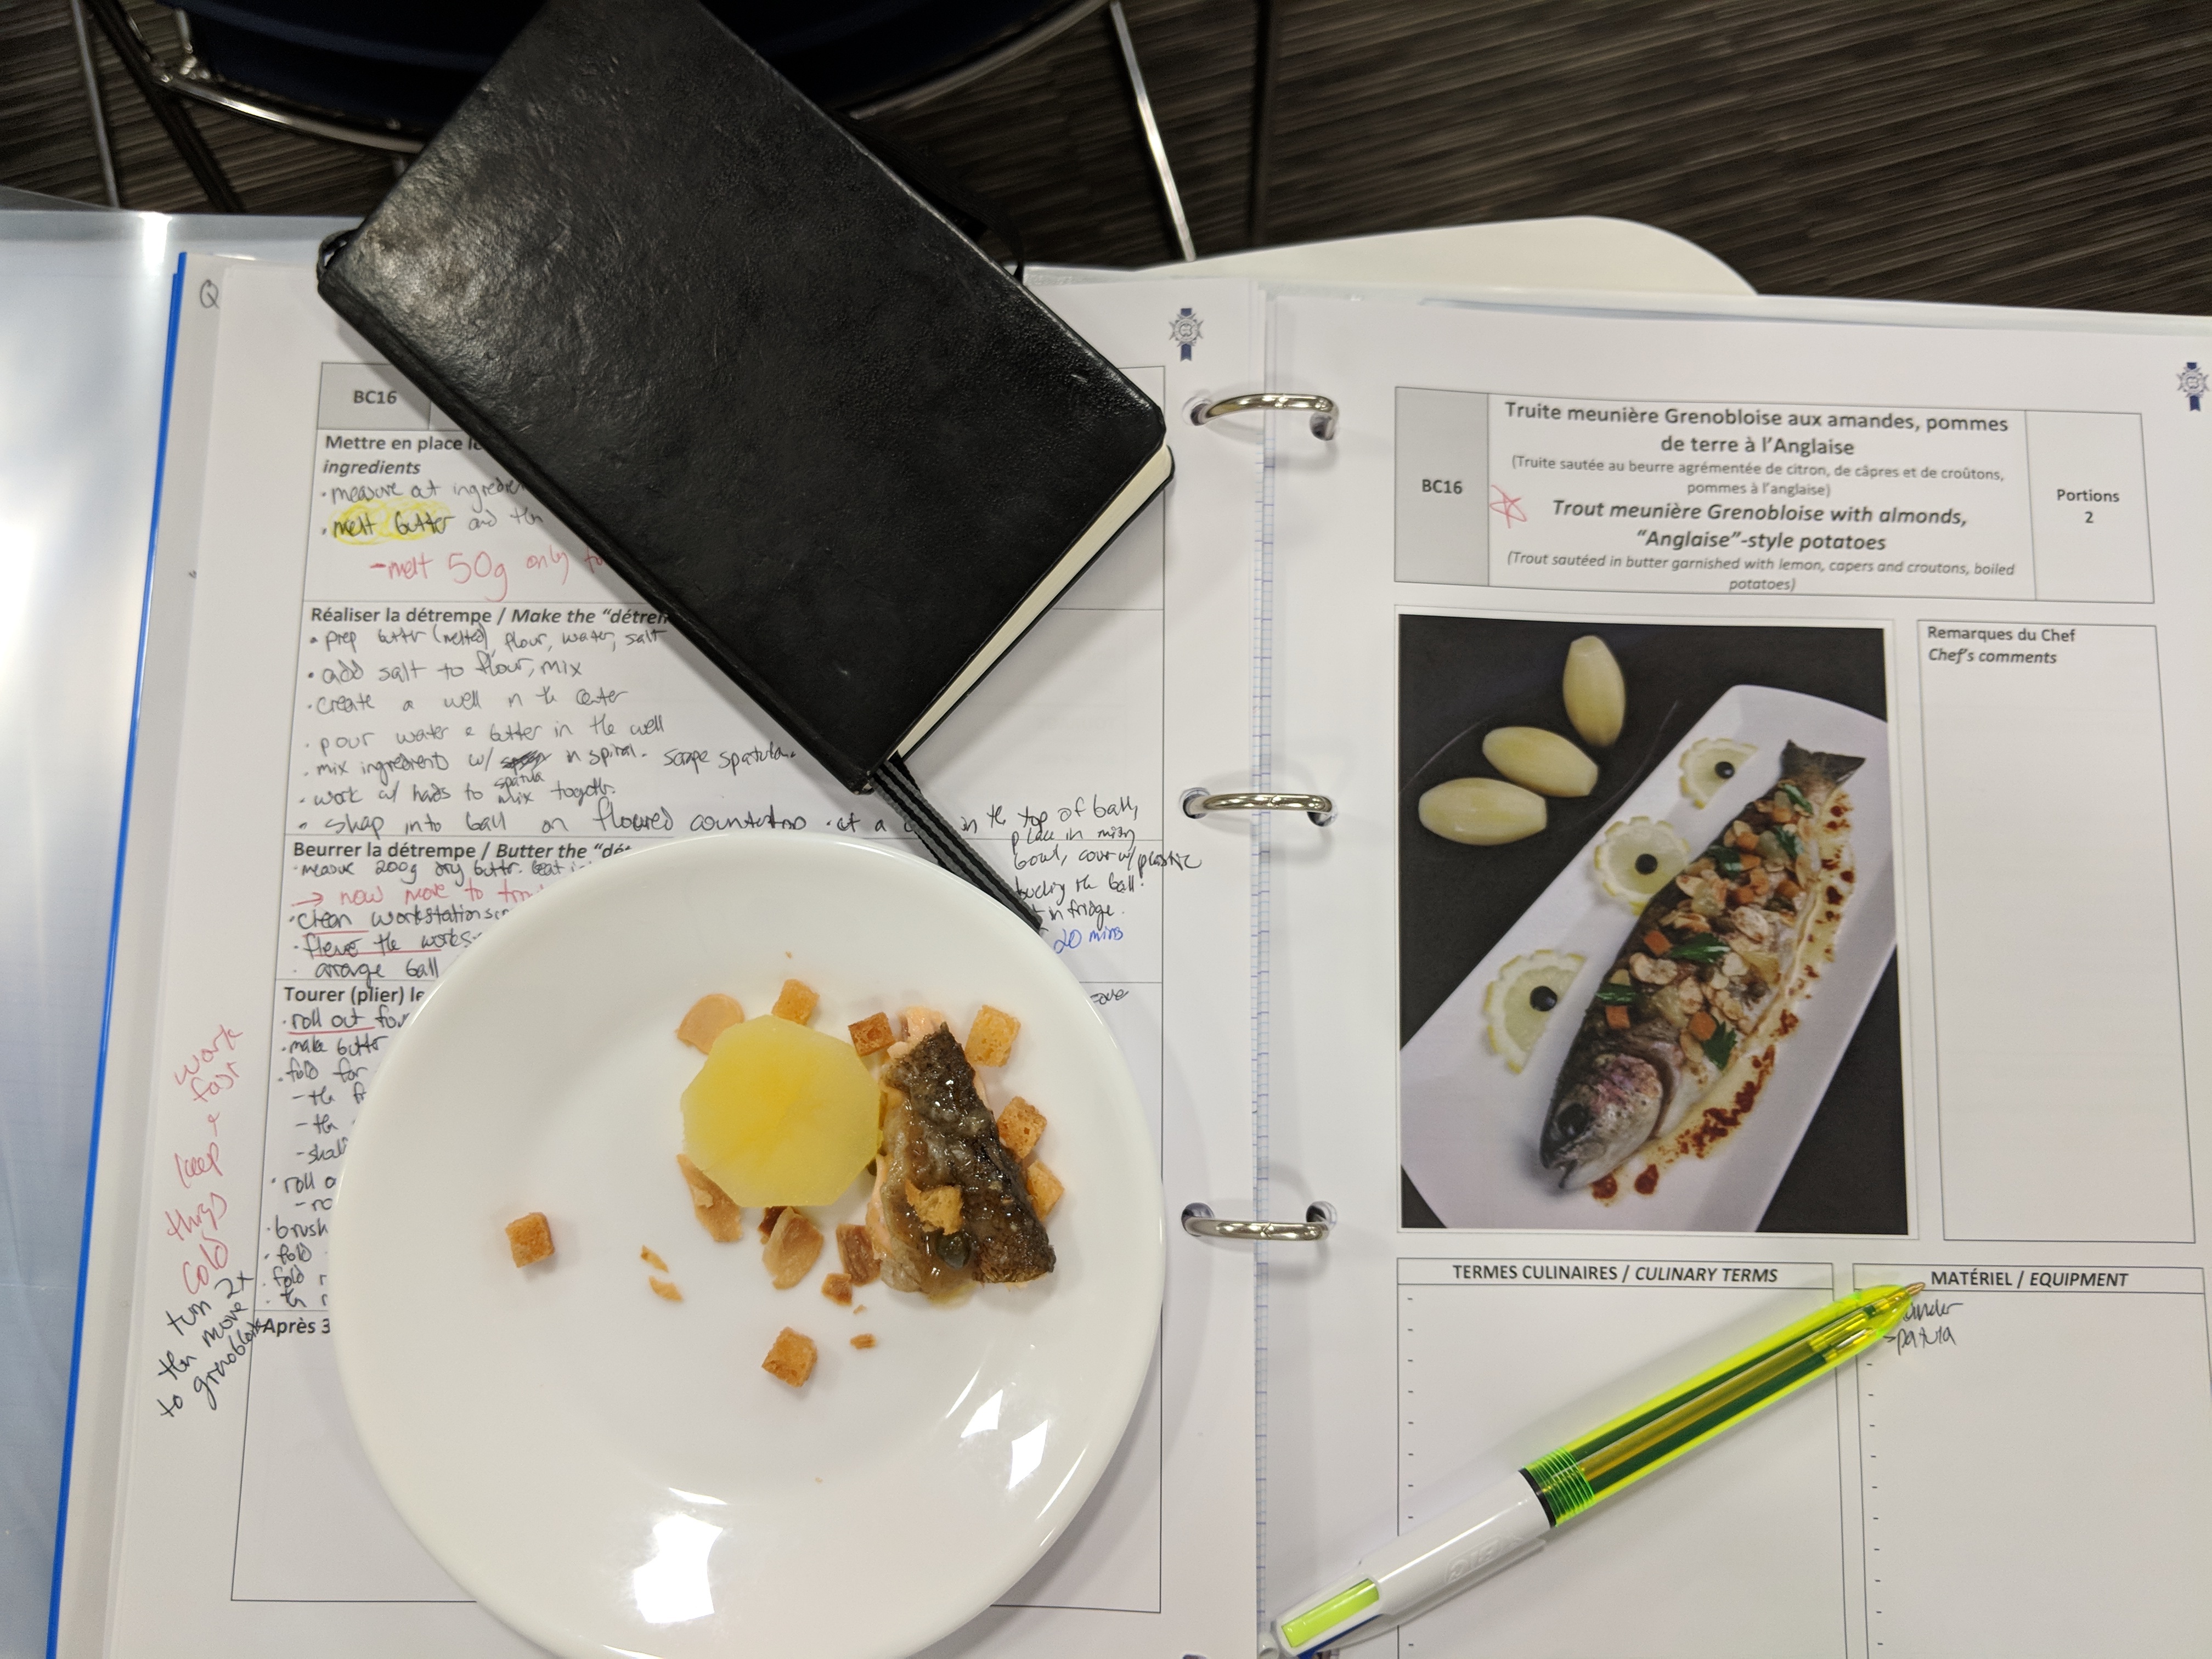 Q
BC16
Mettre en place le
ingredients
• measure out
• melt butter and
- melt 50g only
Réaliser la détrempe / Make the “détrem
• prep butter (melted), flour, water, salt
• add salt to flour, mix
• create a well in the center
• pour water & butter in the well
• mix ingredients w/ spatula in spiral. scrape spatula.
• work w/ hands to mix together.
• shap into ball on floured countertop • cut a
in the top of ball,
place in mixing
bowl, cover w/ plastic
the ball.
in fridge.
20 mins
Beurrer la détrempe / Butter the “dét
• measure 200g dry butter. beat
→ now move to
• clean workstation
• the works
• arrange ball
Tourer (plier) le
• roll out for
• make butter
• fold for
- the
- the
• roll
• brush
• fold
• fold
Après 3
work
fast
keep
things
cold
turn 2x
then move
to grenobloise
BC16
Truite meunière Grenobloise aux amandes, pommes
de terre à l’Anglaise
(Truite sautée au beurre agrémentée de citron, de câpres et de croûtons,
pommes à l’anglaise)
Trout meunière Grenobloise with almonds,
“Anglaise”-style potatoes
(Trout sautéed in butter garnished with lemon, capers and croutons, boiled
potatoes)
Portions
2
Remarques du Chef
Chef’s comments
TERMES CULINAIRES / CULINARY TERMS
MATÉRIEL / EQUIPMENT
spatula
BIC